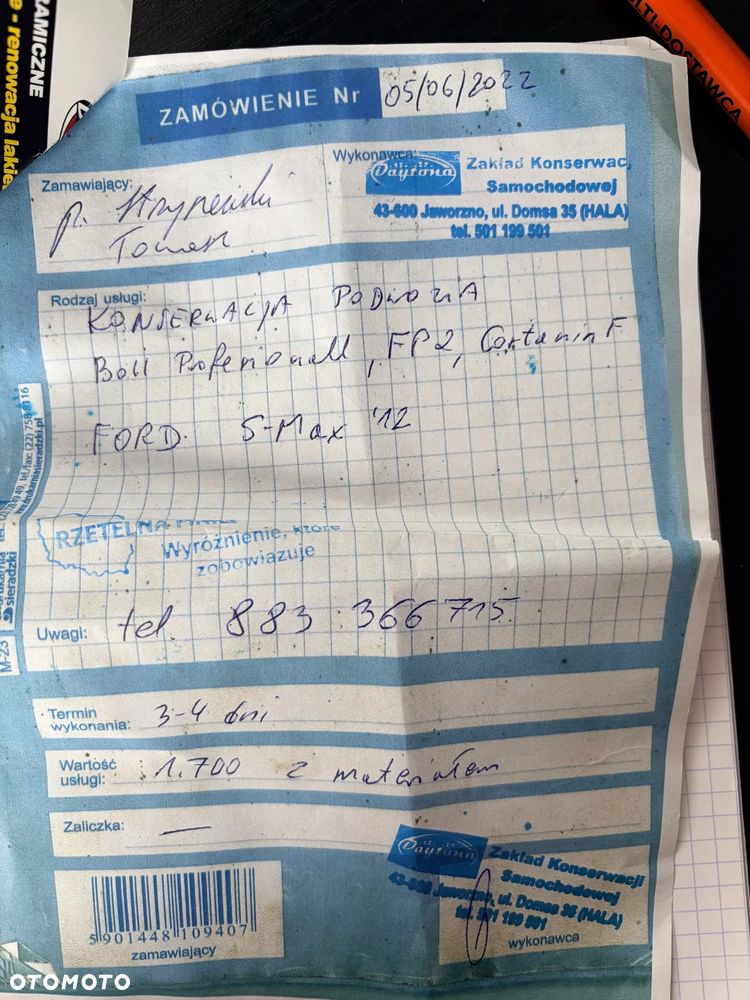 RAMICZNE
e - renowacja lakie
LTI-DOSTAWCA
ZAMÓWIENIE Nr 05/06/2022
Zamawiający:
p.
Tomasz
Wykonawca:
Daytona
Zakład Konserwacj
Samochodowej
43-600 Jaworzno, ul. Domsa 35 (HALA)
tel. 501 199 501
Rodzaj usługi:
KONSERWACJA PODWOZIA
Boll Profesionall, FP2, Cortanin F
FORD S-Max '12
RZETELNA
Wyróżnienie, które
zobowiązuje
sieradzki
M-23
Uwagi: tel. 883 366 715
Termin
wykonania: 3-4 dni
Wartość
usługi: 1.700 z materiałem
Zaliczka: —
Daytona
Zakład Konserwacji
Samochodowej
43-600 Jaworzno, ul. Domsa 35 (HALA)
tel. 501 199 501
5901448109407
zamawiający
wykonawca
OTOMOTO